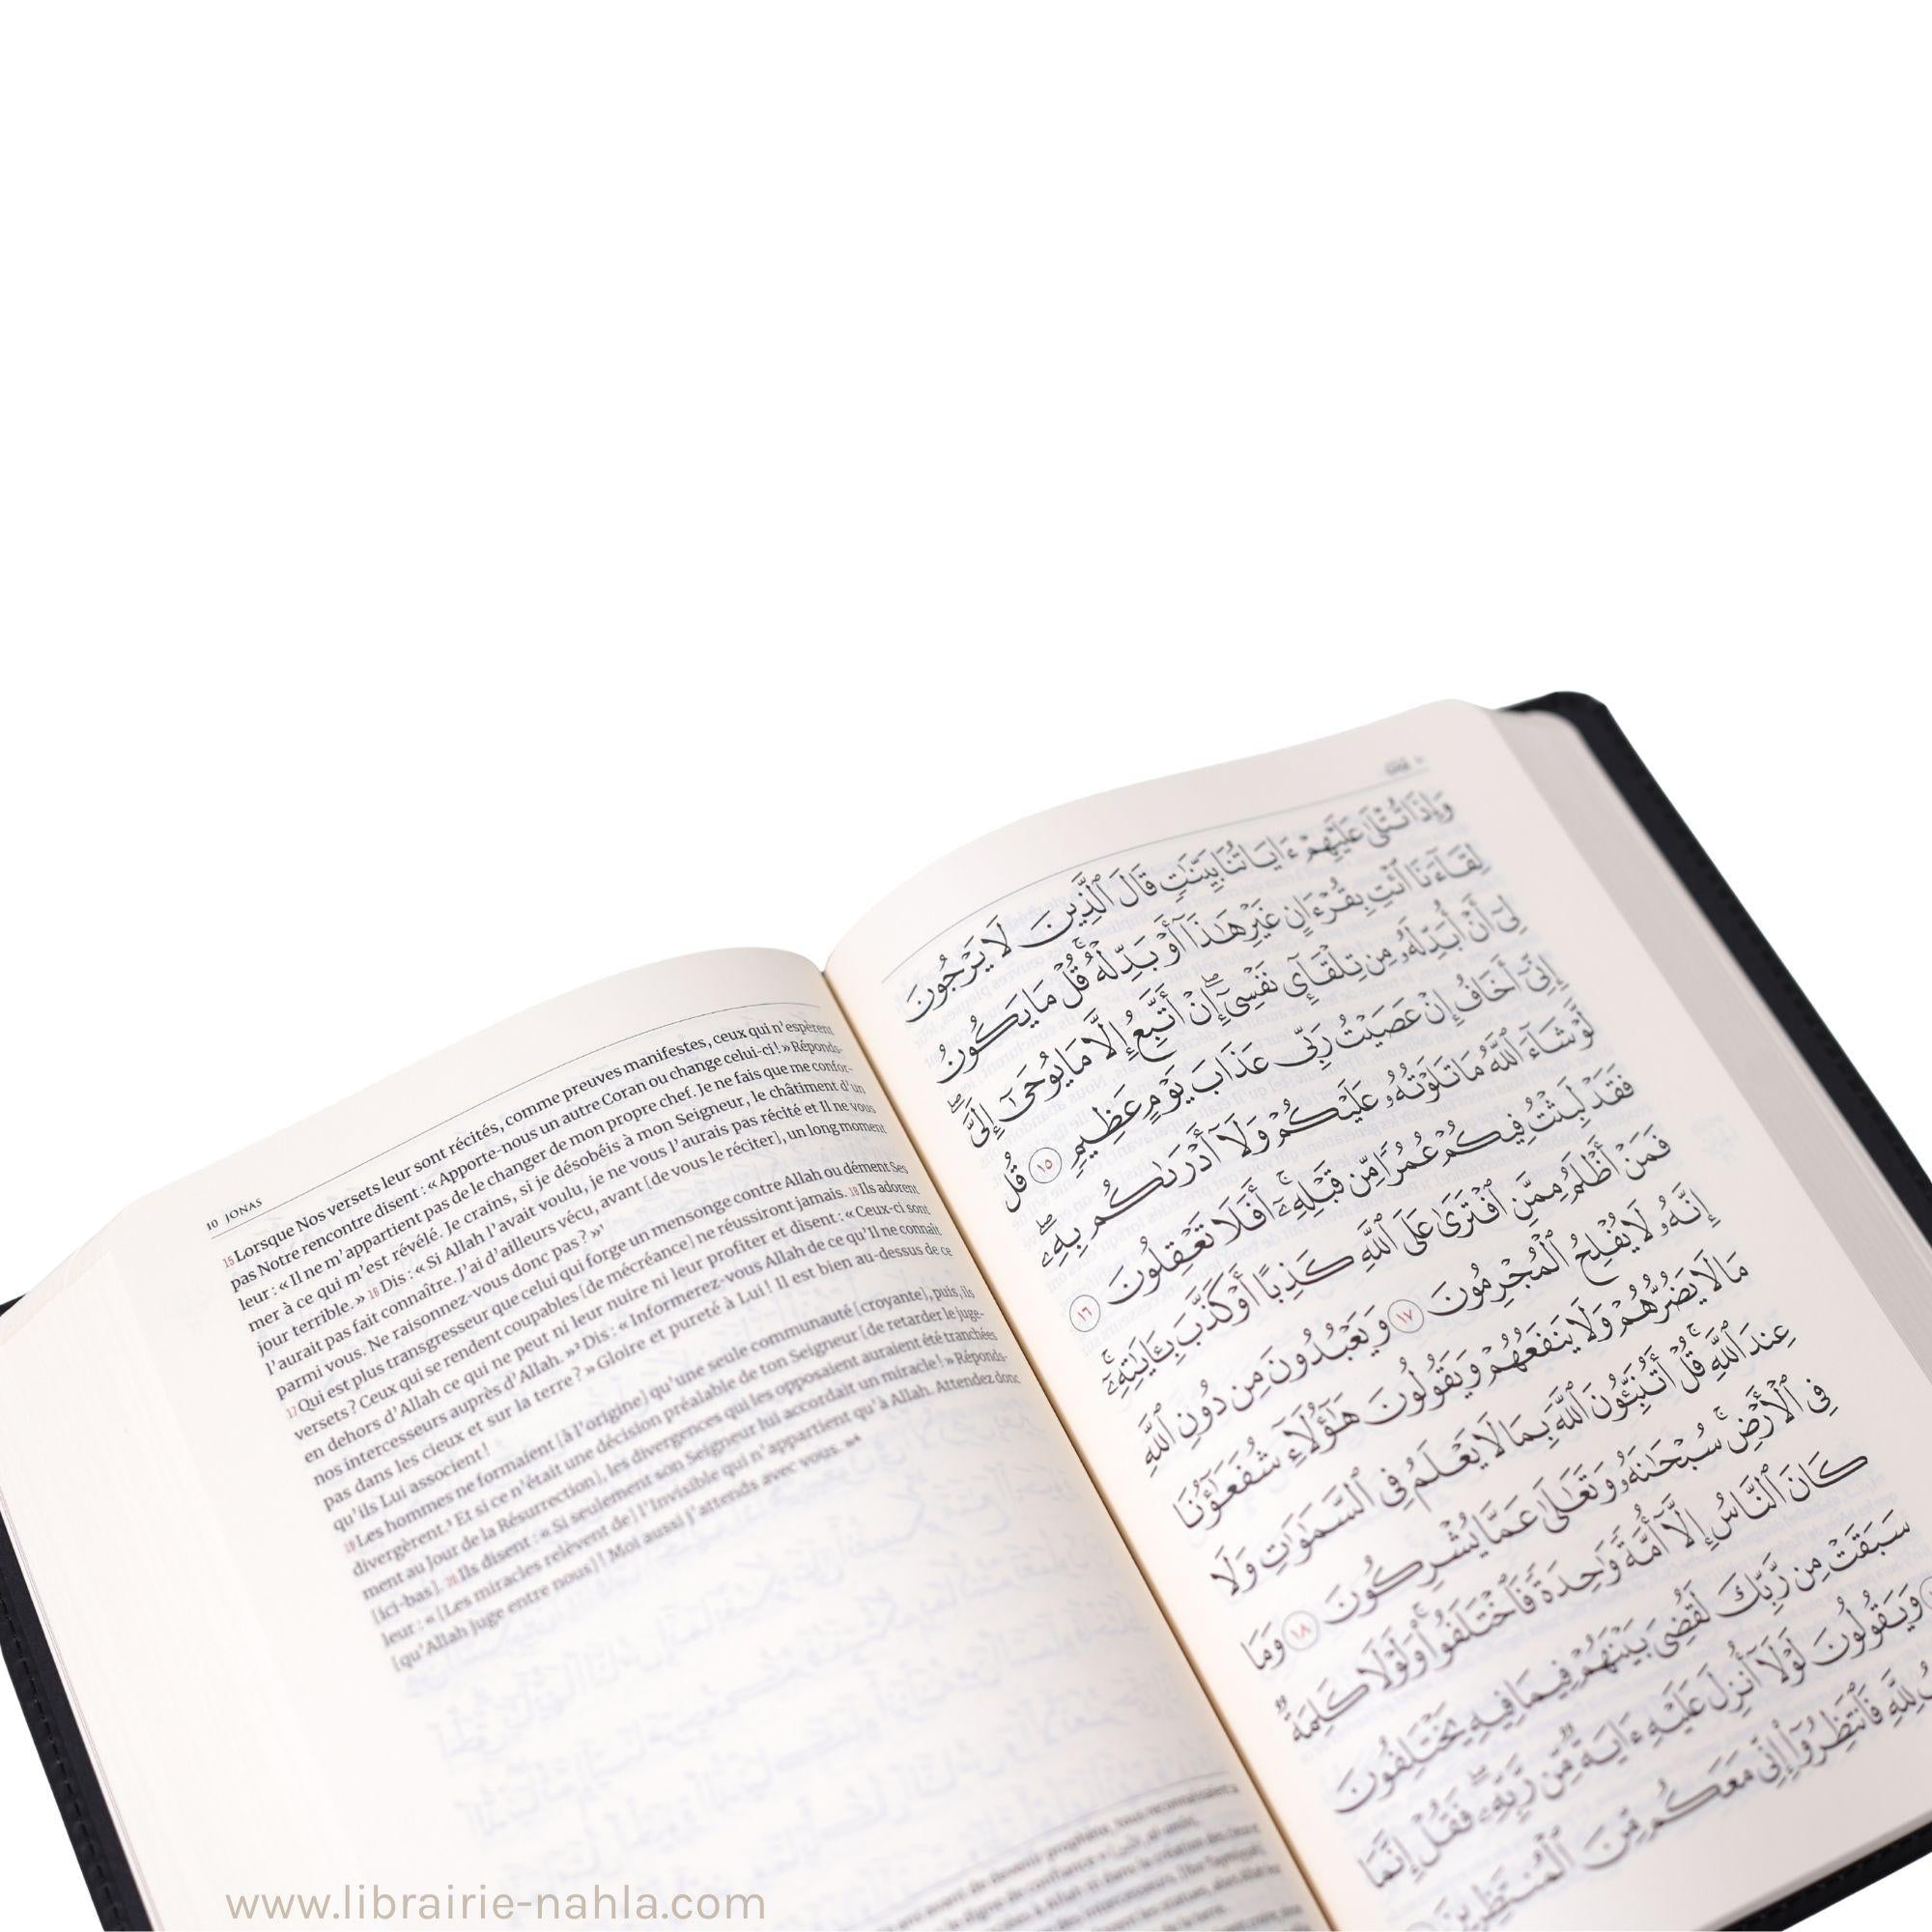 10 JONAS
15 Lorsque Nos versets leur sont récités, comme preuves manifestes, ceux qui n'espèrent
pas Notre rencontre disent : « Apporte-nous un autre Coran ou change celui-ci ! » Réponds-
leur : « Il ne m'appartient pas de le changer de mon propre chef. Je ne fais que me confor-
mer à ce qui m'est révélé. Je crains, si je désobéis à mon Seigneur, le châtiment d'un
jour terrible. » 16 Dis : « Si Allah l'avait voulu, je ne vous l'aurais pas récité et Il ne vous
l'aurait pas fait connaître. J'ai d'ailleurs vécu, avant [de vous le réciter], un long moment
parmi vous. Ne raisonnez-vous donc pas ? »¹
17 Qui est plus transgresseur que celui qui forge un mensonge contre Allah ou dément Ses
versets ? Ceux qui se rendent coupables [de mécréance] ne réussiront jamais. 18 Ils adorent
en dehors d'Allah ce qui ne peut ni leur nuire ni leur profiter et disent : « Ceux-ci sont
nos intercesseurs auprès d'Allah. »² Dis : « Informerez-vous Allah de ce qu'Il ne connaît
pas dans les cieux et sur la terre ? » Gloire et pureté à Lui ! Il est bien au-dessus de ce
qu'ils Lui associent !
19 Les hommes ne formaient [à l'origine] qu'une seule communauté [croyante], puis, ils
divergèrent.³ Et si ce n'était une décision préalable de ton Seigneur [de retarder le juge-
ment au Jour de la Résurrection], les divergences qui les opposaient auraient été tranchées
[ici-bas]. 20 Ils disent : « Si seulement son Seigneur lui accordait un miracle ! » Réponds-
leur : « [Les miracles relèvent de] l'Invisible qui n'appartient qu'à Allah. Attendez donc
[qu'Allah juge entre nous] ! Moi aussi j'attends avec vous. »⁴
وَإِذَا تُتْلَىٰ عَلَيْهِمْ ءَايَاتُنَا بَيِّنَٰتٍ قَالَ ٱلَّذِينَ لَا يَرْجُونَ
لِقَآءَنَا ٱئْتِ بِقُرْءَانٍ غَيْرِ هَٰذَآ أَوْ بَدِّلْهُ ۚ قُلْ مَا يَكُونُ
لِىٓ أَنْ أُبَدِّلَهُۥ مِن تِلْقَآئِ نَفْسِىٓ ۖ إِنْ أَتَّبِعُ إِلَّا مَا يُوحَىٰٓ إِلَىَّ ۖ
إِنِّىٓ أَخَافُ إِنْ عَصَيْتُ رَبِّى عَذَابَ يَوْمٍ عَظِيمٍ ١٥ قُل
لَّوْ شَآءَ ٱللَّهُ مَا تَلَوْتُهُۥ عَلَيْكُمْ وَلَآ أَدْرَىٰكُم بِهِۦ ۖ
فَقَدْ لَبِثْتُ فِيكُمْ عُمُرًا مِّن قَبْلِهِۦٓ ۚ أَفَلَا تَعْقِلُونَ ١٦
فَمَنْ أَظْلَمُ مِمَّنِ ٱفْتَرَىٰ عَلَى ٱللَّهِ كَذِبًا أَوْ كَذَّبَ بِـَٔايَٰتِهِۦٓ ۚ
إِنَّهُۥ لَا يُفْلِحُ ٱلْمُجْرِمُونَ ١٧ وَيَعْبُدُونَ مِن دُونِ ٱللَّهِ
مَا لَا يَضُرُّهُمْ وَلَا يَنفَعُهُمْ وَيَقُولُونَ هَٰٓؤُلَآءِ شُفَعَٰٓؤُنَا
عِندَ ٱللَّهِ ۚ قُلْ أَتُنَبِّـُٔونَ ٱللَّهَ بِمَا لَا يَعْلَمُ فِى ٱلسَّمَٰوَٰتِ وَلَا
فِى ٱلْأَرْضِ ۚ سُبْحَٰنَهُۥ وَتَعَٰلَىٰ عَمَّا يُشْرِكُونَ ١٨ وَمَا
كَانَ ٱلنَّاسُ إِلَّآ أُمَّةً وَٰحِدَةً فَٱخْتَلَفُوا۟ ۚ وَلَوْلَا كَلِمَةٌ
سَبَقَتْ مِن رَّبِّكَ لَقُضِىَ بَيْنَهُمْ فِيمَا فِيهِ يَخْتَلِفُونَ
وَيَقُولُونَ لَوْلَآ أُنزِلَ عَلَيْهِ ءَايَةٌ مِّن رَّبِّهِۦ ۖ فَقُلْ إِنَّمَا
لِلَّهِ فَٱنتَظِرُوٓا۟ إِنِّى مَعَكُم مِّنَ ٱلْمُنتَظِرِينَ
www.librairie-nahla.com